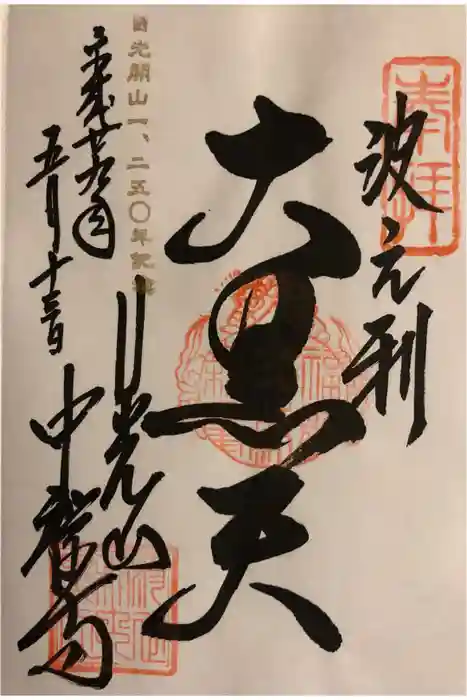 奉拝
波之利
大黒天
日光開山一、二五〇年記念
平成廿八年
五月十三日
日光山
中禅寺